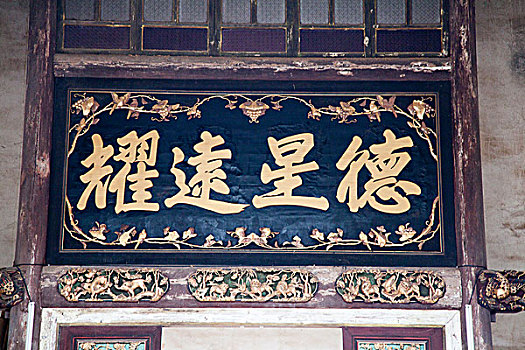 德星遠耀